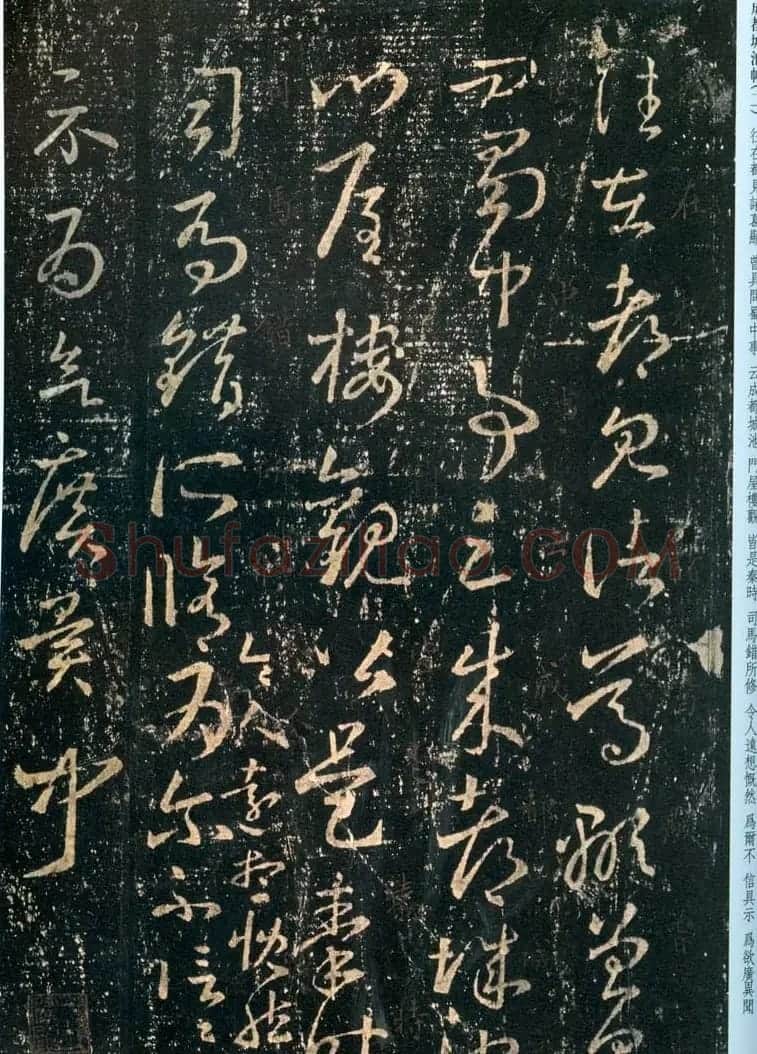 成都城池帖(二) 往在都見諸葛顯 曾具問蜀中事 云成都城池 門屋樓觀 皆是秦時 司馬錯所修 令人遠想慨然 爲爾不 信具示 爲欲廣異聞
往在都見諸葛顯曾具
問蜀中事云成都城池
門屋樓觀皆是秦時
司馬錯所修令人遠想慨然爲爾不信具
示爲欲廣異聞
Shufazihao.COM